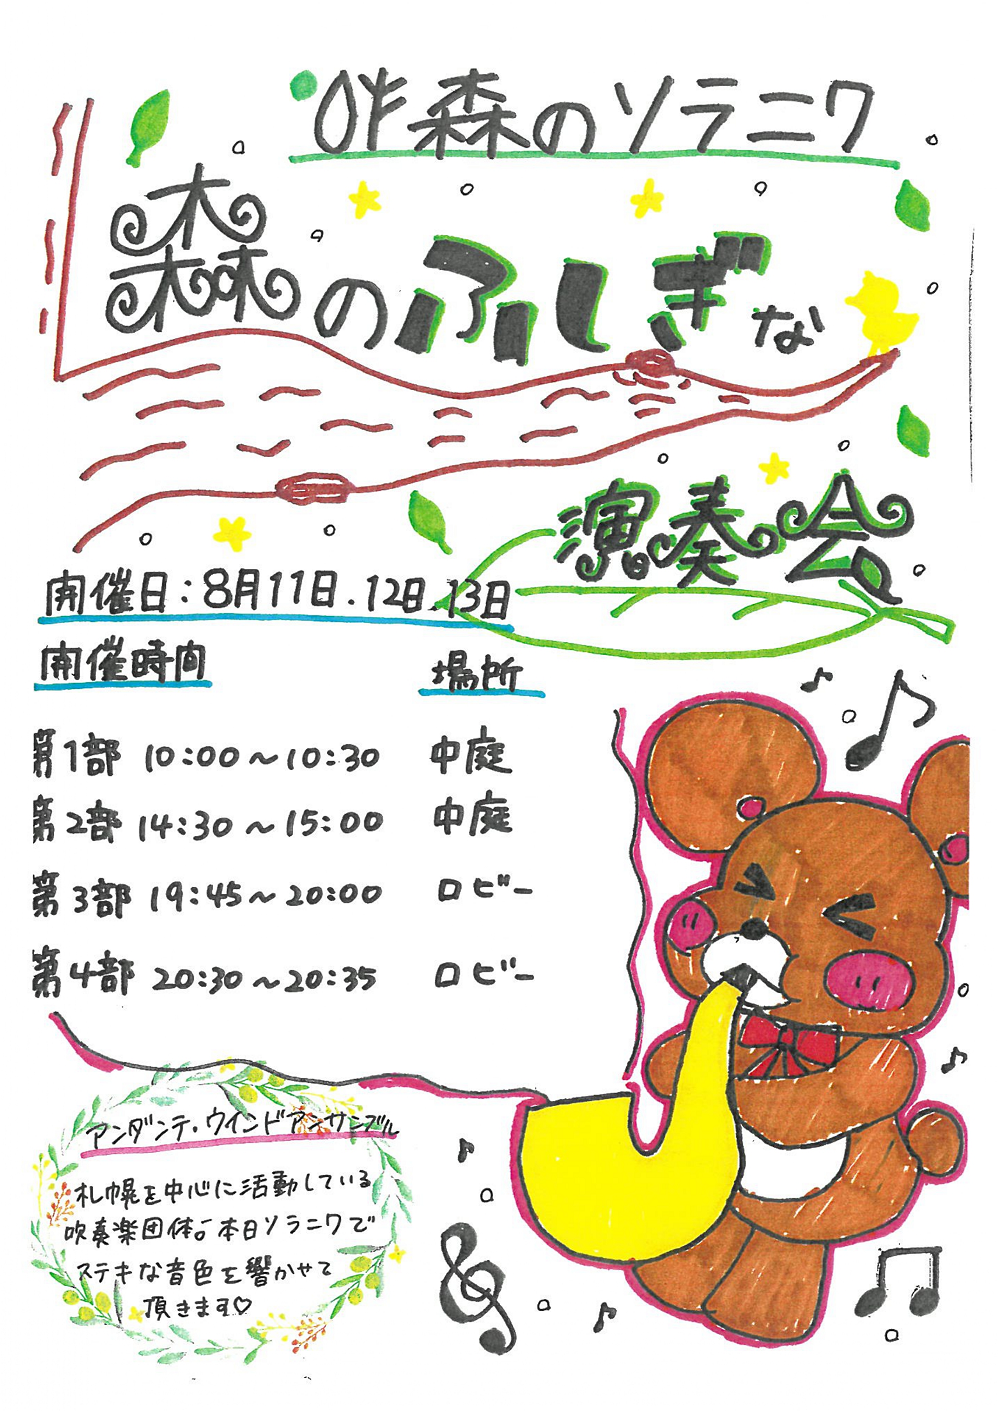 吽森のソラニワ
森のふしぎな
演奏会
開催日：8月11日.12日.13日
開催時間 場所
第1部 10:00～10:30 中庭
第2部 14:30～15:00 中庭
第3部 19:45～20:00 ロビー
第4部 20:30～20:35 ロビー
アンダンテ・ウインドアンサンブル
札幌を中心に活動している
吹奏楽団体。本日ソラニワで
ステキな音色を響かせて
頂きます♡